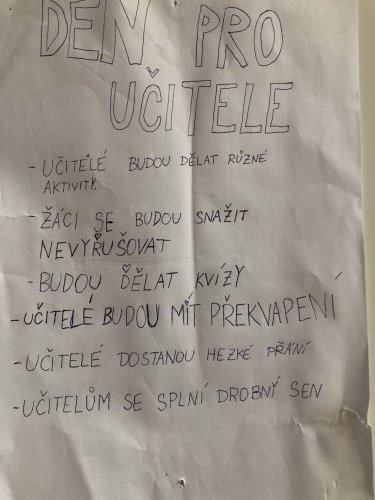 DEN PRO
UČITELE
- UČITELÉ BUDOU DĚLAT RŮZNÉ
AKTIVITY.
- ŽÁCI SE BUDOU SNAŽIT
NEVYRUŠOVAT
- BUDOU DĚLAT KVÍZY
- UČITELÉ BUDOU MÍT PŘEKVAPENÍ
- UČITELÉ DOSTANOU HEZKÉ PŘÁNÍ
- UČITELŮM SE SPLNÍ DROBNÝ SEN